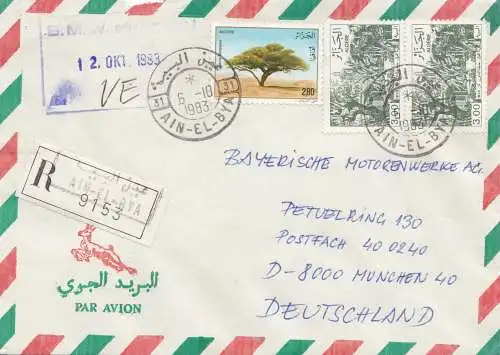 B.M.W.
12. OKT. 1983
VE
عين البية
6-10
1983
31 31
AIN-EL-BYA
الجزائر
ALGERIE
2.80
الجزائر
3.00
الجزائر
3.00
1983
AIN-EL-BYA
R
عين البية
AIN-EL-BYA
9153
البريد الجوي
PAR AVION
BAYERISCHE MOTORENWERKE AG.
PETUELRING 130
POSTFACH 40 0240
D-8000 MÜNCHEN 40
DEUTSCHLAND